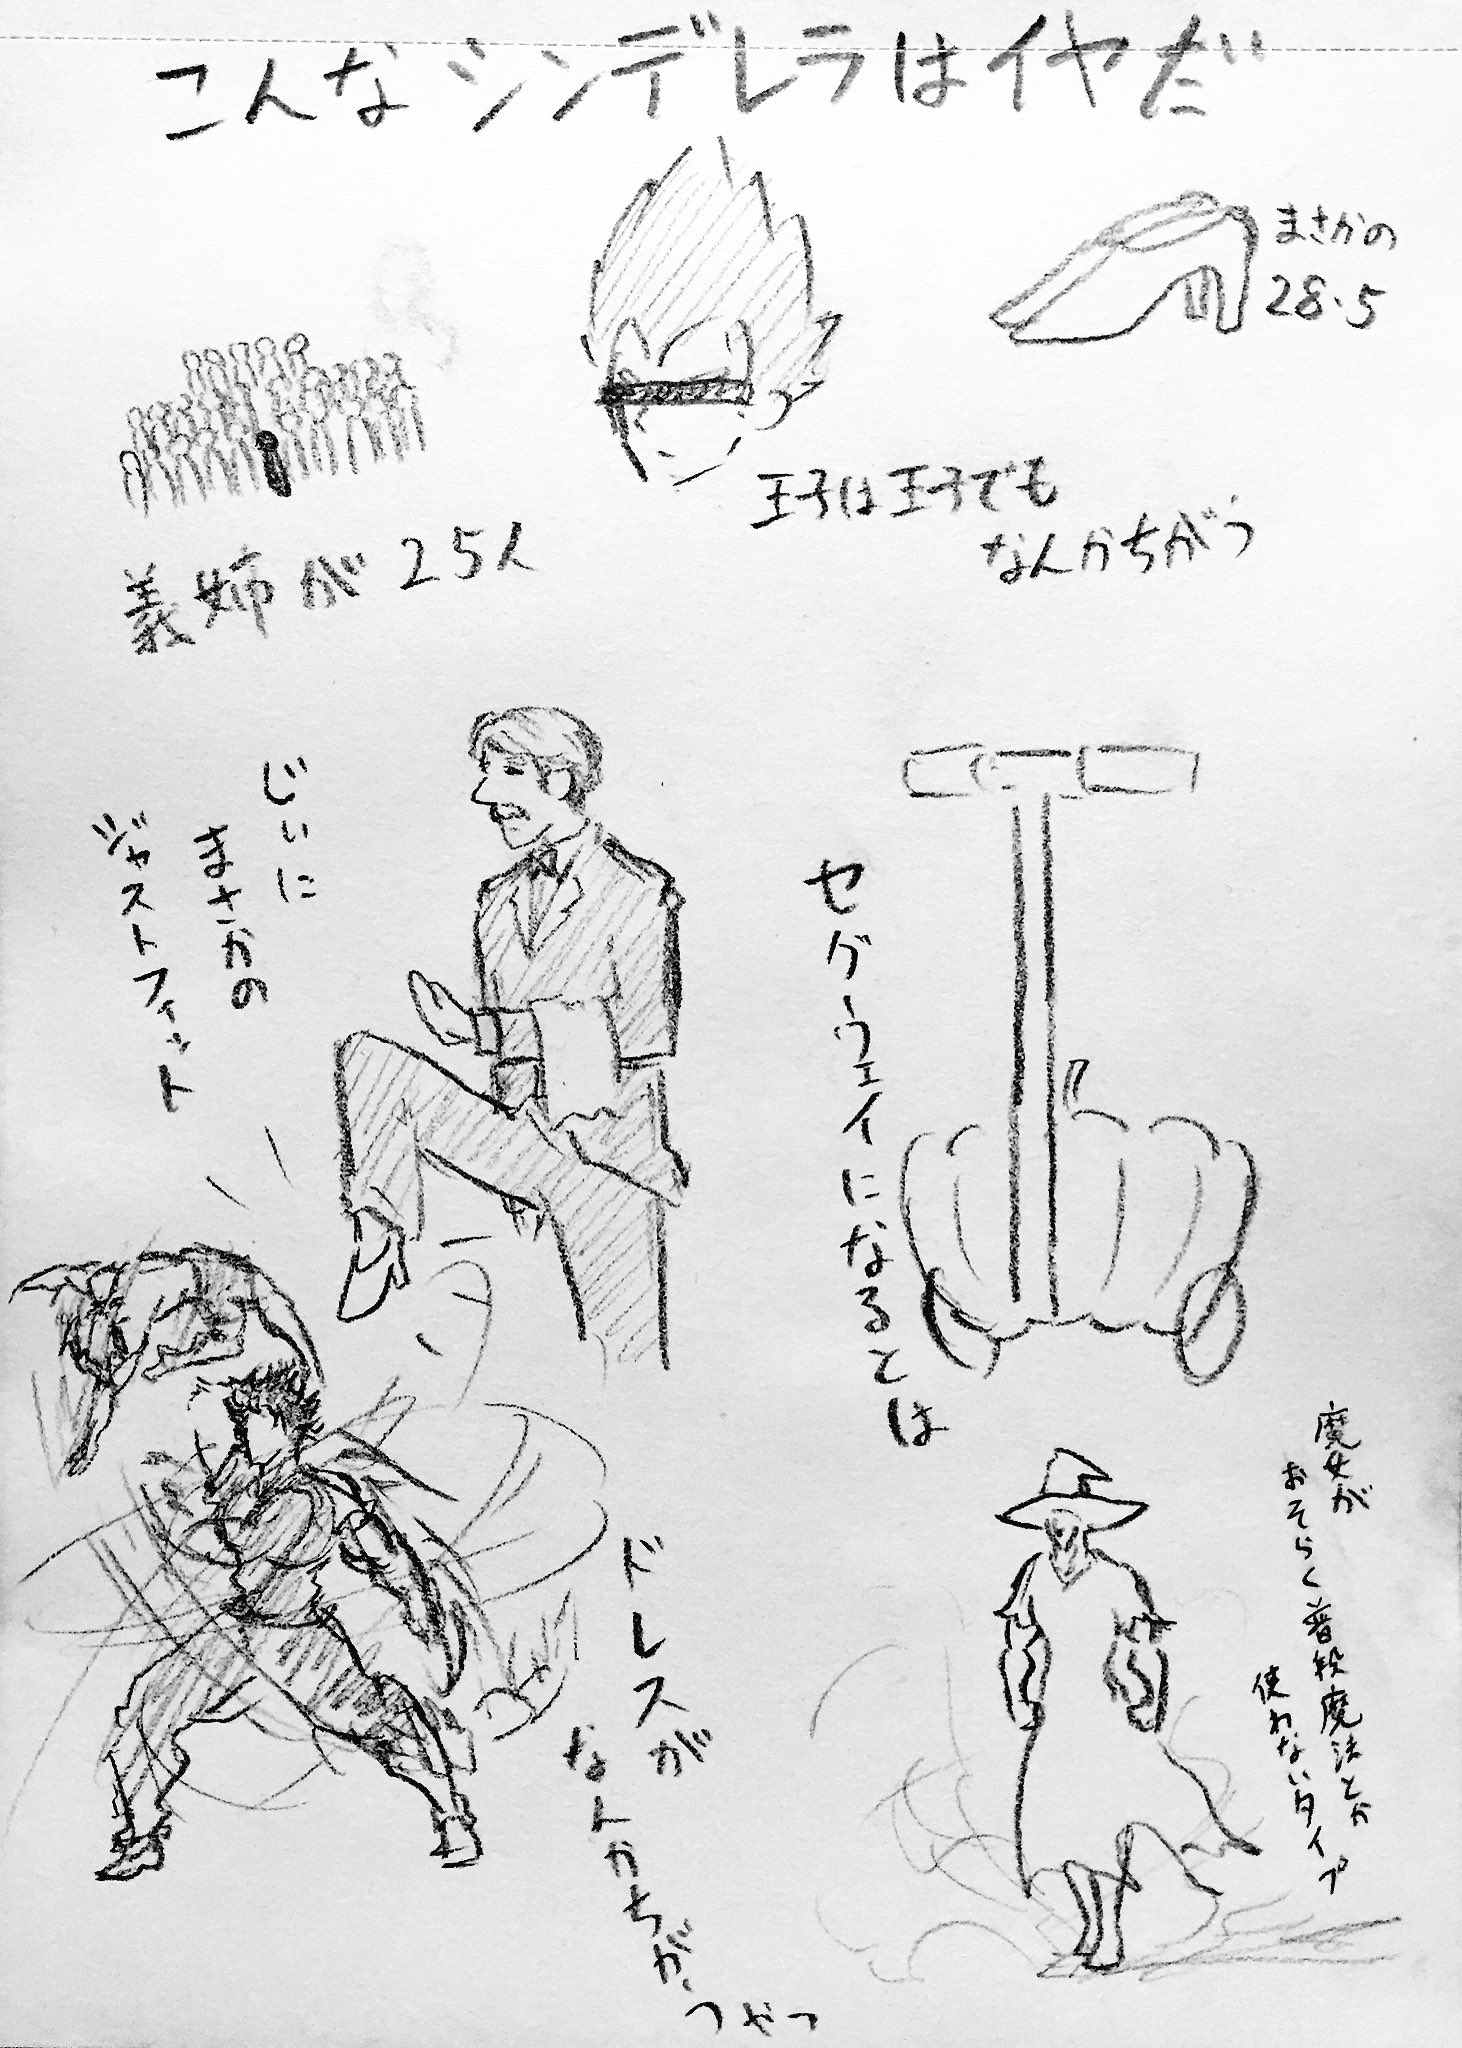 こんなシンデレラはイヤだ
まさかの
28.5
王子は王子でも
なんかちがう
義姉が25人
じいに
まさかの
ジャストフィット
セグウェイになるとは
魔女が
おそらく普段魔法とか
使わないタイプ
ドレスが
なんかちがうやつ